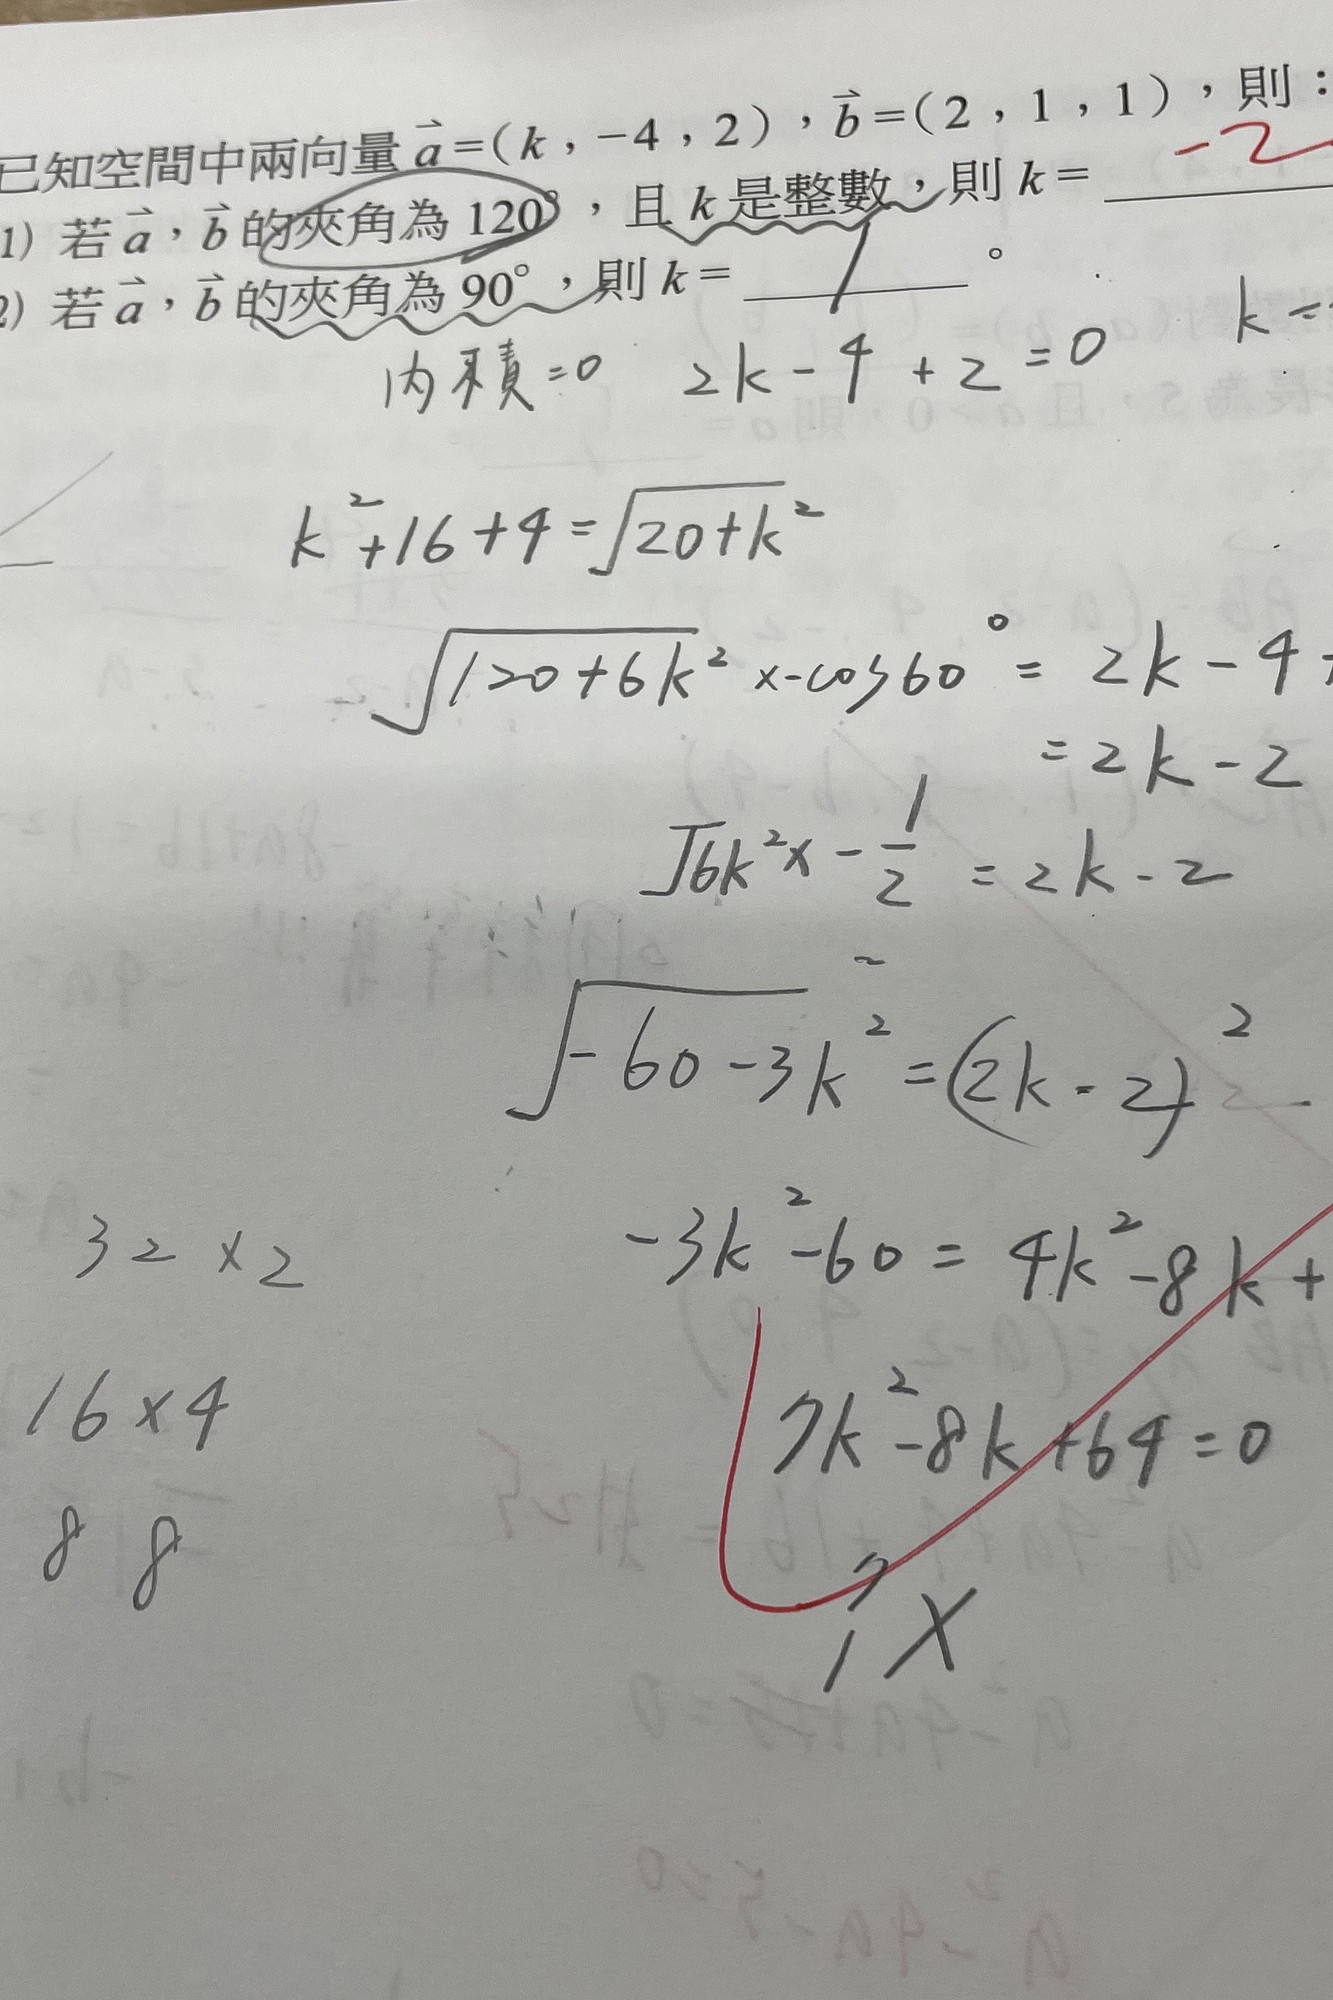 已知空間中兩向量 a=(k,-4,2),b=(2,1,1),則:
1) 若 a,b 的夾角為 120°,且 k 是整數,則 k= -2
2) 若 a,b 的夾角為 90°,則 k= 1 。
k=
內積=0 2k-4+2=0
k²+16+4=√20+k²
√120+6k² x-cos60°=2k-4+
=2k-2
√6k² x-1/2=2k-2
√-60-3k²=(2k-2)²
-3k²-60=4k²-8k+
32x2
7k²-8k+64=0
16x4
8 8
7
1 X